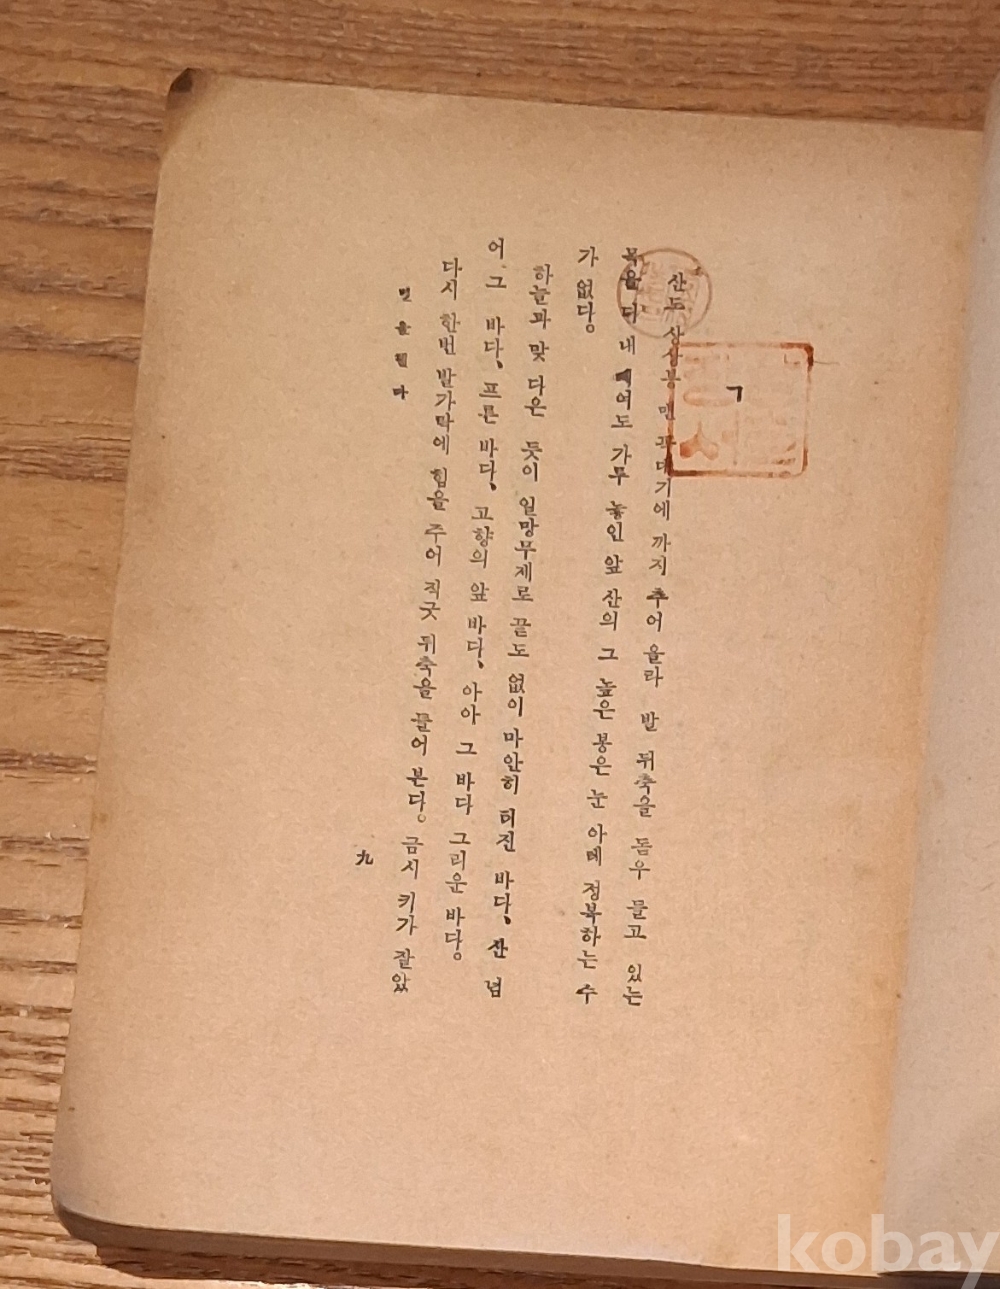 ㄱ
산도 상상봉 맨 꼭대기에 까지 추어 올라 발 뒤축을 돋우 들고 있는
목을 다 내 여도 가무 놓인 앞 산의 그 높은 봉은 눈 아래 정복하는 수
가 없다。
하늘과 맞 다은 듯이 일망무제로 끝도 없이 마안히 터진 바다、 산 넘
어 그 바다、 프른 바다、 고향의 앞 바다、 아아 그 바다 그리운 바다。
다시 한번 발가락에 힘을 주어 직긋 뒤축을 들어 본다。 금시 키가 잘았
九
kobay